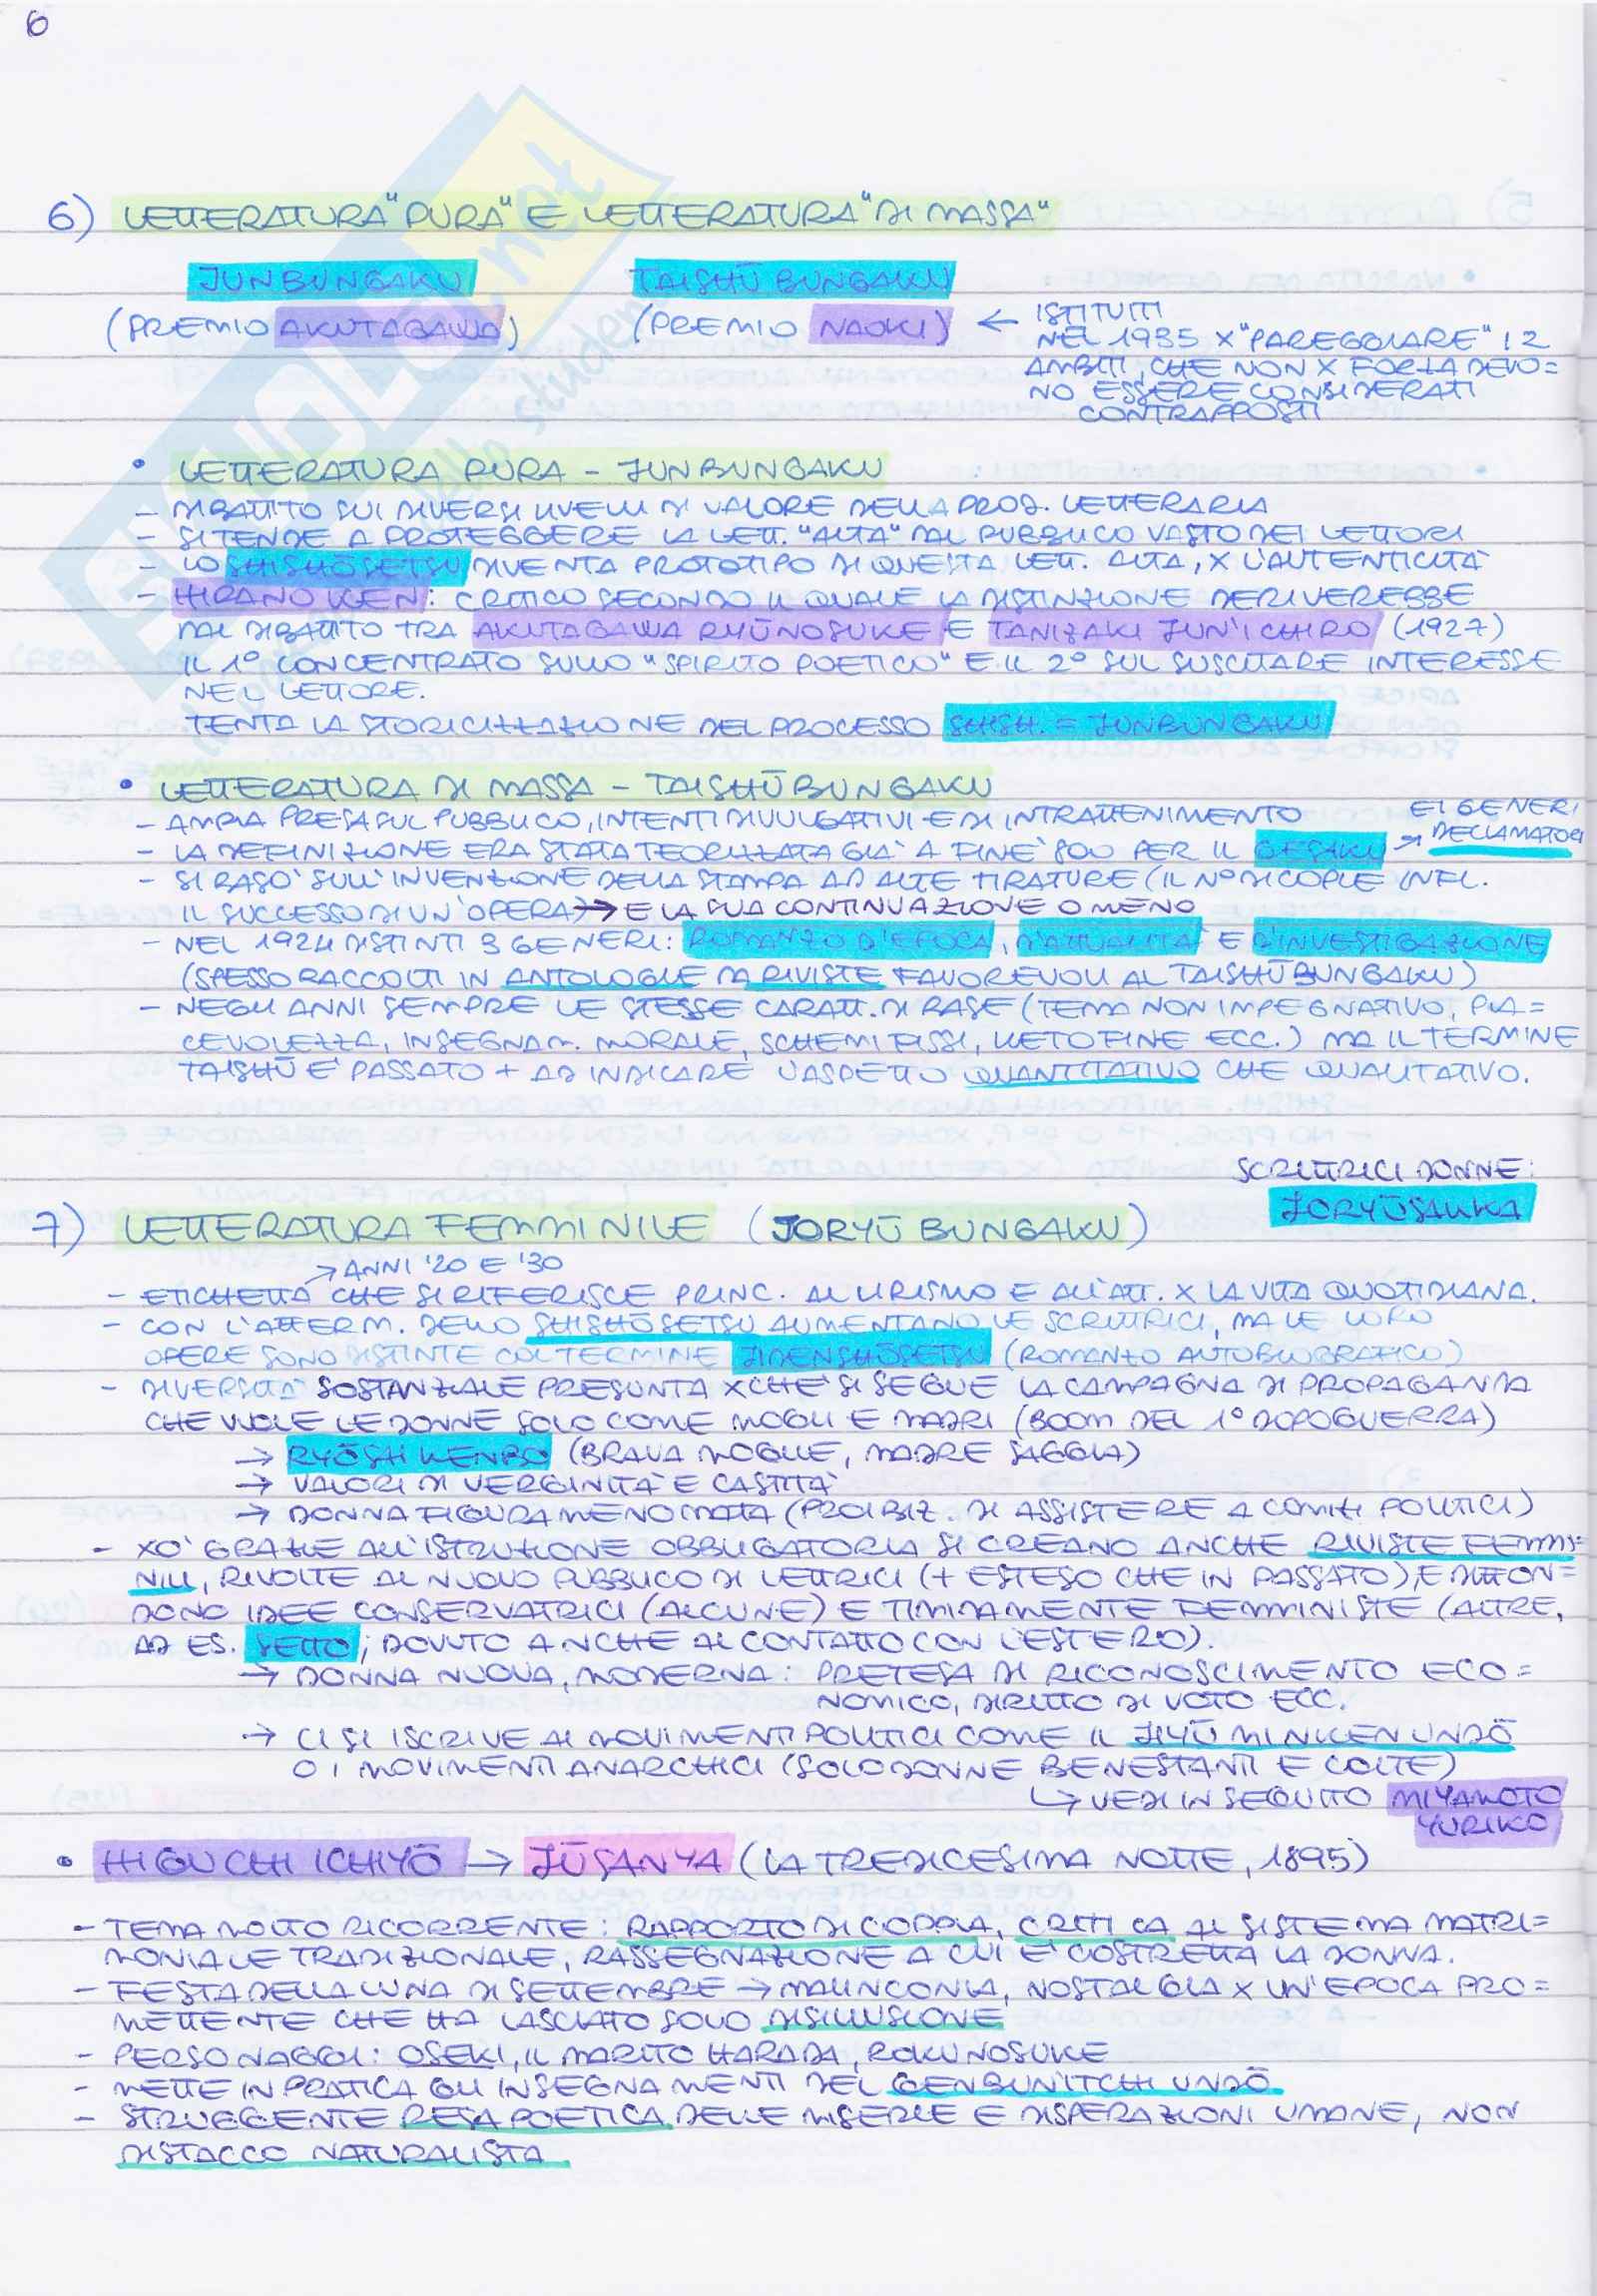 6
6) LETTERATURA "PURA" E LETTERATURA "DI MASSA"
JUNBUNGAKU TAISHŪ BUNGAKU
(PREMIO AKUTAGAWA) (PREMIO NAOKI) ← ISTITUITI
NEL 1935 X "PAREGGIARE" I 2
AMBITI, CHE NON X FORZA DEVO=
NO ESSERE CONSIDERATI
CONTRAPPOSTI
• LETTERATURA PURA - JUNBUNGAKU
- DIBATTITO SUI DIVERSI LIVELLI DI VALORE DELLA PROD. LETTERARIA
- SI TENDE A PROTEGGERE LA LETT. "ALTA" DAL PUBBLICO VASTO DEI LETTORI
- LO SHISHŌSETSU DIVENTA PROTOTIPO DI QUESTA LETT. ALTA, X L'AUTENTICITÀ
- HIRANO KEN: CRITICO SECONDO IL QUALE LA DISTINZIONE DERIVEREBBE
DAL DIBATTITO TRA AKUTAGAWA RYŪNOSUKE E TANIZAKI JUN'ICHIRO (1927)
IL 1° CONCENTRATO SULLO "SPIRITO POETICO" E IL 2° SUL SUSCITARE INTERESSE
NEL LETTORE.
TENTA LA STORICIZZAZIONE DEL PROCESSO SHISH. = JUNBUNGAKU
• LETTERATURA DI MASSA - TAISHŪ BUNGAKU
- AMPIA PRESA SUL PUBBLICO, INTENTI DIVULGATIVI E DI INTRATTENIMENTO
- LA DEFINIZIONE ERA STATA TEORIZZATA GIÀ A FINE '800 PER IL GESAKU → E I GENERI
DECLAMATORI
- SI BASÒ SULL'INVENZIONE DELLA STAMPA AD ALTE TIRATURE (IL N° DI COPIE INFL.
IL SUCCESSO DI UN'OPERA) → E LA SUA CONTINUAZIONE O MENO
- NEL 1924 DISTINTI 3 GENERI: ROMANZO D'EPOCA, D'ATTUALITÀ E D'INVESTIGAZIONE
(SPESSO RACCOLTI IN ANTOLOGIE DA RIVISTE FAVOREVOLI AL TAISHŪ BUNGAKU)
- NEGLI ANNI SEMPRE LE STESSE CARATT. DI BASE (TEMA NON IMPEGNATIVO, PIA=
CEVOLEZZA, INSEGNAM. MORALE, SCHEMI FISSI, LIETO FINE ECC.) MA IL TERMINE
TAISHŪ È PASSATO + AD INDICARE L'ASPETTO QUANTITATIVO CHE QUALITATIVO.
SCRITTRICI DONNE:
JORYŪSAKKA
7) LETTERATURA FEMMINILE (JORYŪ BUNGAKU)
→ ANNI '20 E '30
- ETICHETTA CHE SI RIFERISCE PRINC. AL LIRISMO E ALL'ATT. X LA VITA QUOTIDIANA.
- CON L'AFFERM. DELLO SHISHŌSETSU AUMENTANO LE SCRITTRICI, MA LE LORO
OPERE SONO DISTINTE COL TERMINE JIDENSHŌSETSU (ROMANZO AUTOBIOGRAFICO)
- DIVERSITÀ SOSTANZIALE PRESUNTA XCHÈ SI SEGUE LA CAMPAGNA DI PROPAGANDA
CHE VUOLE LE DONNE SOLO COME MOGLI E MADRI (BOOM DEL 1° DOPOGUERRA)
→ RYŌSHI KENBO (BRAVA MOGLIE, MADRE SAGGIA)
→ VALORI DI VERGINITÀ E CASTITÀ
→ DONNA FIGURA MENOMATA (PROIBIZ. DI ASSISTERE A COMIZI POLITICI)
- XÒ GRAZIE ALL'ISTRUZIONE OBBLIGATORIA SI CREANO ANCHE RIVISTE FEMMI=
NILI, RIVOLTE AL NUOVO PUBBLICO DI LETTRICI (+ ESTESO CHE IN PASSATO), E DIFFON=
DONO IDEE CONSERVATRICI (ALCUNE) E TIMIDAMENTE FEMMINISTE (ALTRE,
AD ES. SEITO; DOVUTO ANCHE AL CONTATTO CON L'ESTERO).
→ DONNA NUOVA, MODERNA: PRETESA DI RICONOSCIMENTO ECO=
NOMICO, DIRITTO DI VOTO ECC.
→ CI SI ISCRIVE AI MOVIMENTI POLITICI COME IL JIYŪ MINKEN UNDŌ
O I MOVIMENTI ANARCHICI (SOLO DONNE BENESTANTI E COLTE)
↳ VEDI IN SEGUITO MIYAMOTO
YURIKO
• HIGUCHI ICHIYŌ → JŪSANYA (LA TREDICESIMA NOTTE, 1895)
- TEMA MOLTO RICORRENTE: RAPPORTO DI COPPIA, CRITICA AL SISTEMA MATRI=
MONIALE TRADIZIONALE, RASSEGNAZIONE A CUI È COSTRETTA LA DONNA.
- FESTA DELLA LUNA DI SETTEMBRE → MALINCONIA, NOSTALGIA X UN'EPOCA PRO=
METTENTE CHE HA LASCIATO SOLO DISILLUSIONE
- PERSONAGGI: OSEKI, IL MARITO HARADA, ROKUNOSUKE
- METTE IN PRATICA GLI INSEGNAMENTI DEL GENBUN'ITCHI UNDŌ
- STRUGGENTE RESA POETICA DELLE MISERIE E DISPERAZIONI UMANE, NON
DISTACCO NATURALISTA